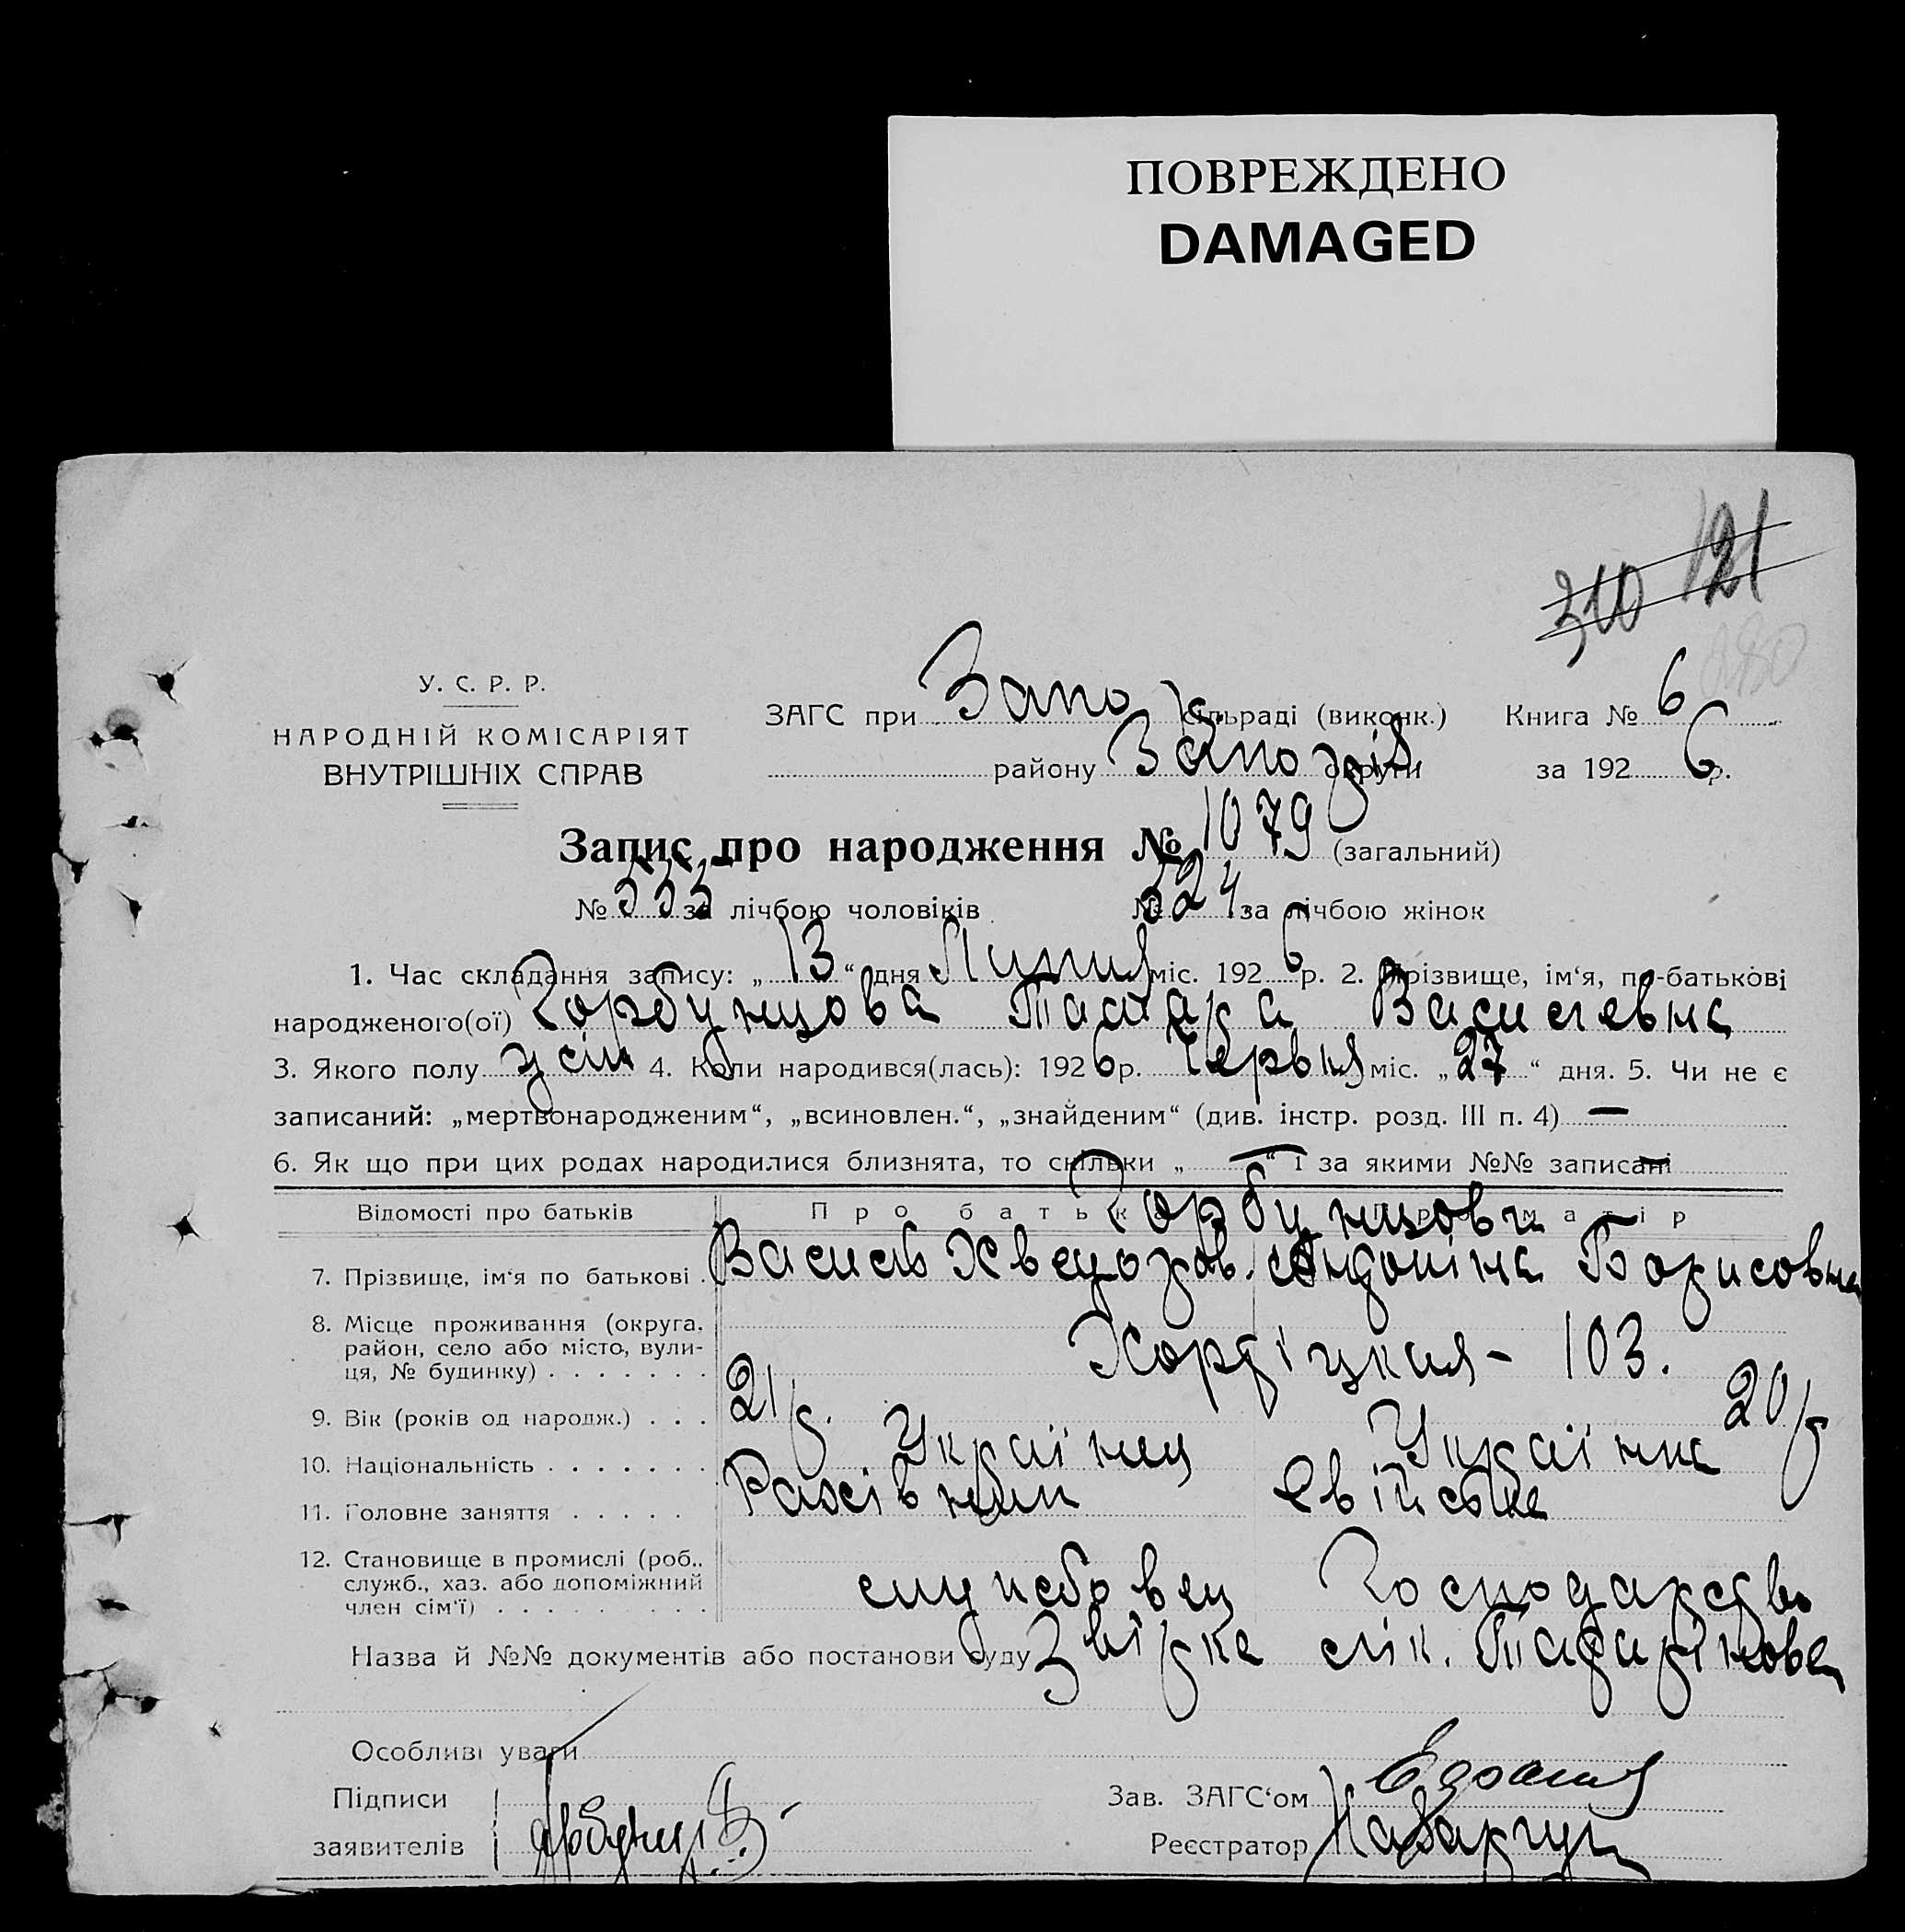 ПОВРЕЖДЕНО
DAMAGED
310 121
У. С. Р. Р.
НАРОДНІЙ КОМІСАРІЯТ
ВНУТРІШНІХ СПРАВ
ЗАГС при Запо сільраді (виконк.) Книга № 6
району Запоріз. округи за 192 6 р.
Запис про народження № 1079 (загальний)
№ 555 за лічбою чоловіків № 524 за лічбою жінок
1. Час складання запису: „ 13 “ дня Липня міс. 192 6 р. 2. Прізвище, ім‘я, по-батькові
народженого(ої) Горбунцова Тамара Василевна
3. Якого полу жін 4. Коли народився(лась): 192 6 р. Червня міс. „ 27 “ дня. 5. Чи не є
записаний: „мертвонародженим“, „всиновлен.“, „знайденим“ (див. інстр. розд. III п. 4) —
6. Як що при цих родах народилися близнята, то скільки „ — “ і за якими №№ записані —
Відомості про батьків Про батька Про матір
Горбунцови
7. Прізвище, ім‘я по батькові . Василь Хведоров. Андоніна Борисовна
8. Місце проживання (округа, район, село або місто, вули-ця, № будинку) . . . . . . . Хортіцкая - 103.
9. Вік (років од народж.) . . . 21 р. 20 р
10. Національність . . . . . . . Українец Українка
11. Головне заняття . . . . . Рахівник Свійське
12. Становище в промислі (роб.. служб., хаз. або допоміжний член сім‘ї) . . . . . . . . . службовец Господарство
Назва й №№ документів або постанови суду Звірка лік.
Особливі уваги
Підписи
заявителів
Зав. ЗАГС‘ом
Реєстратор